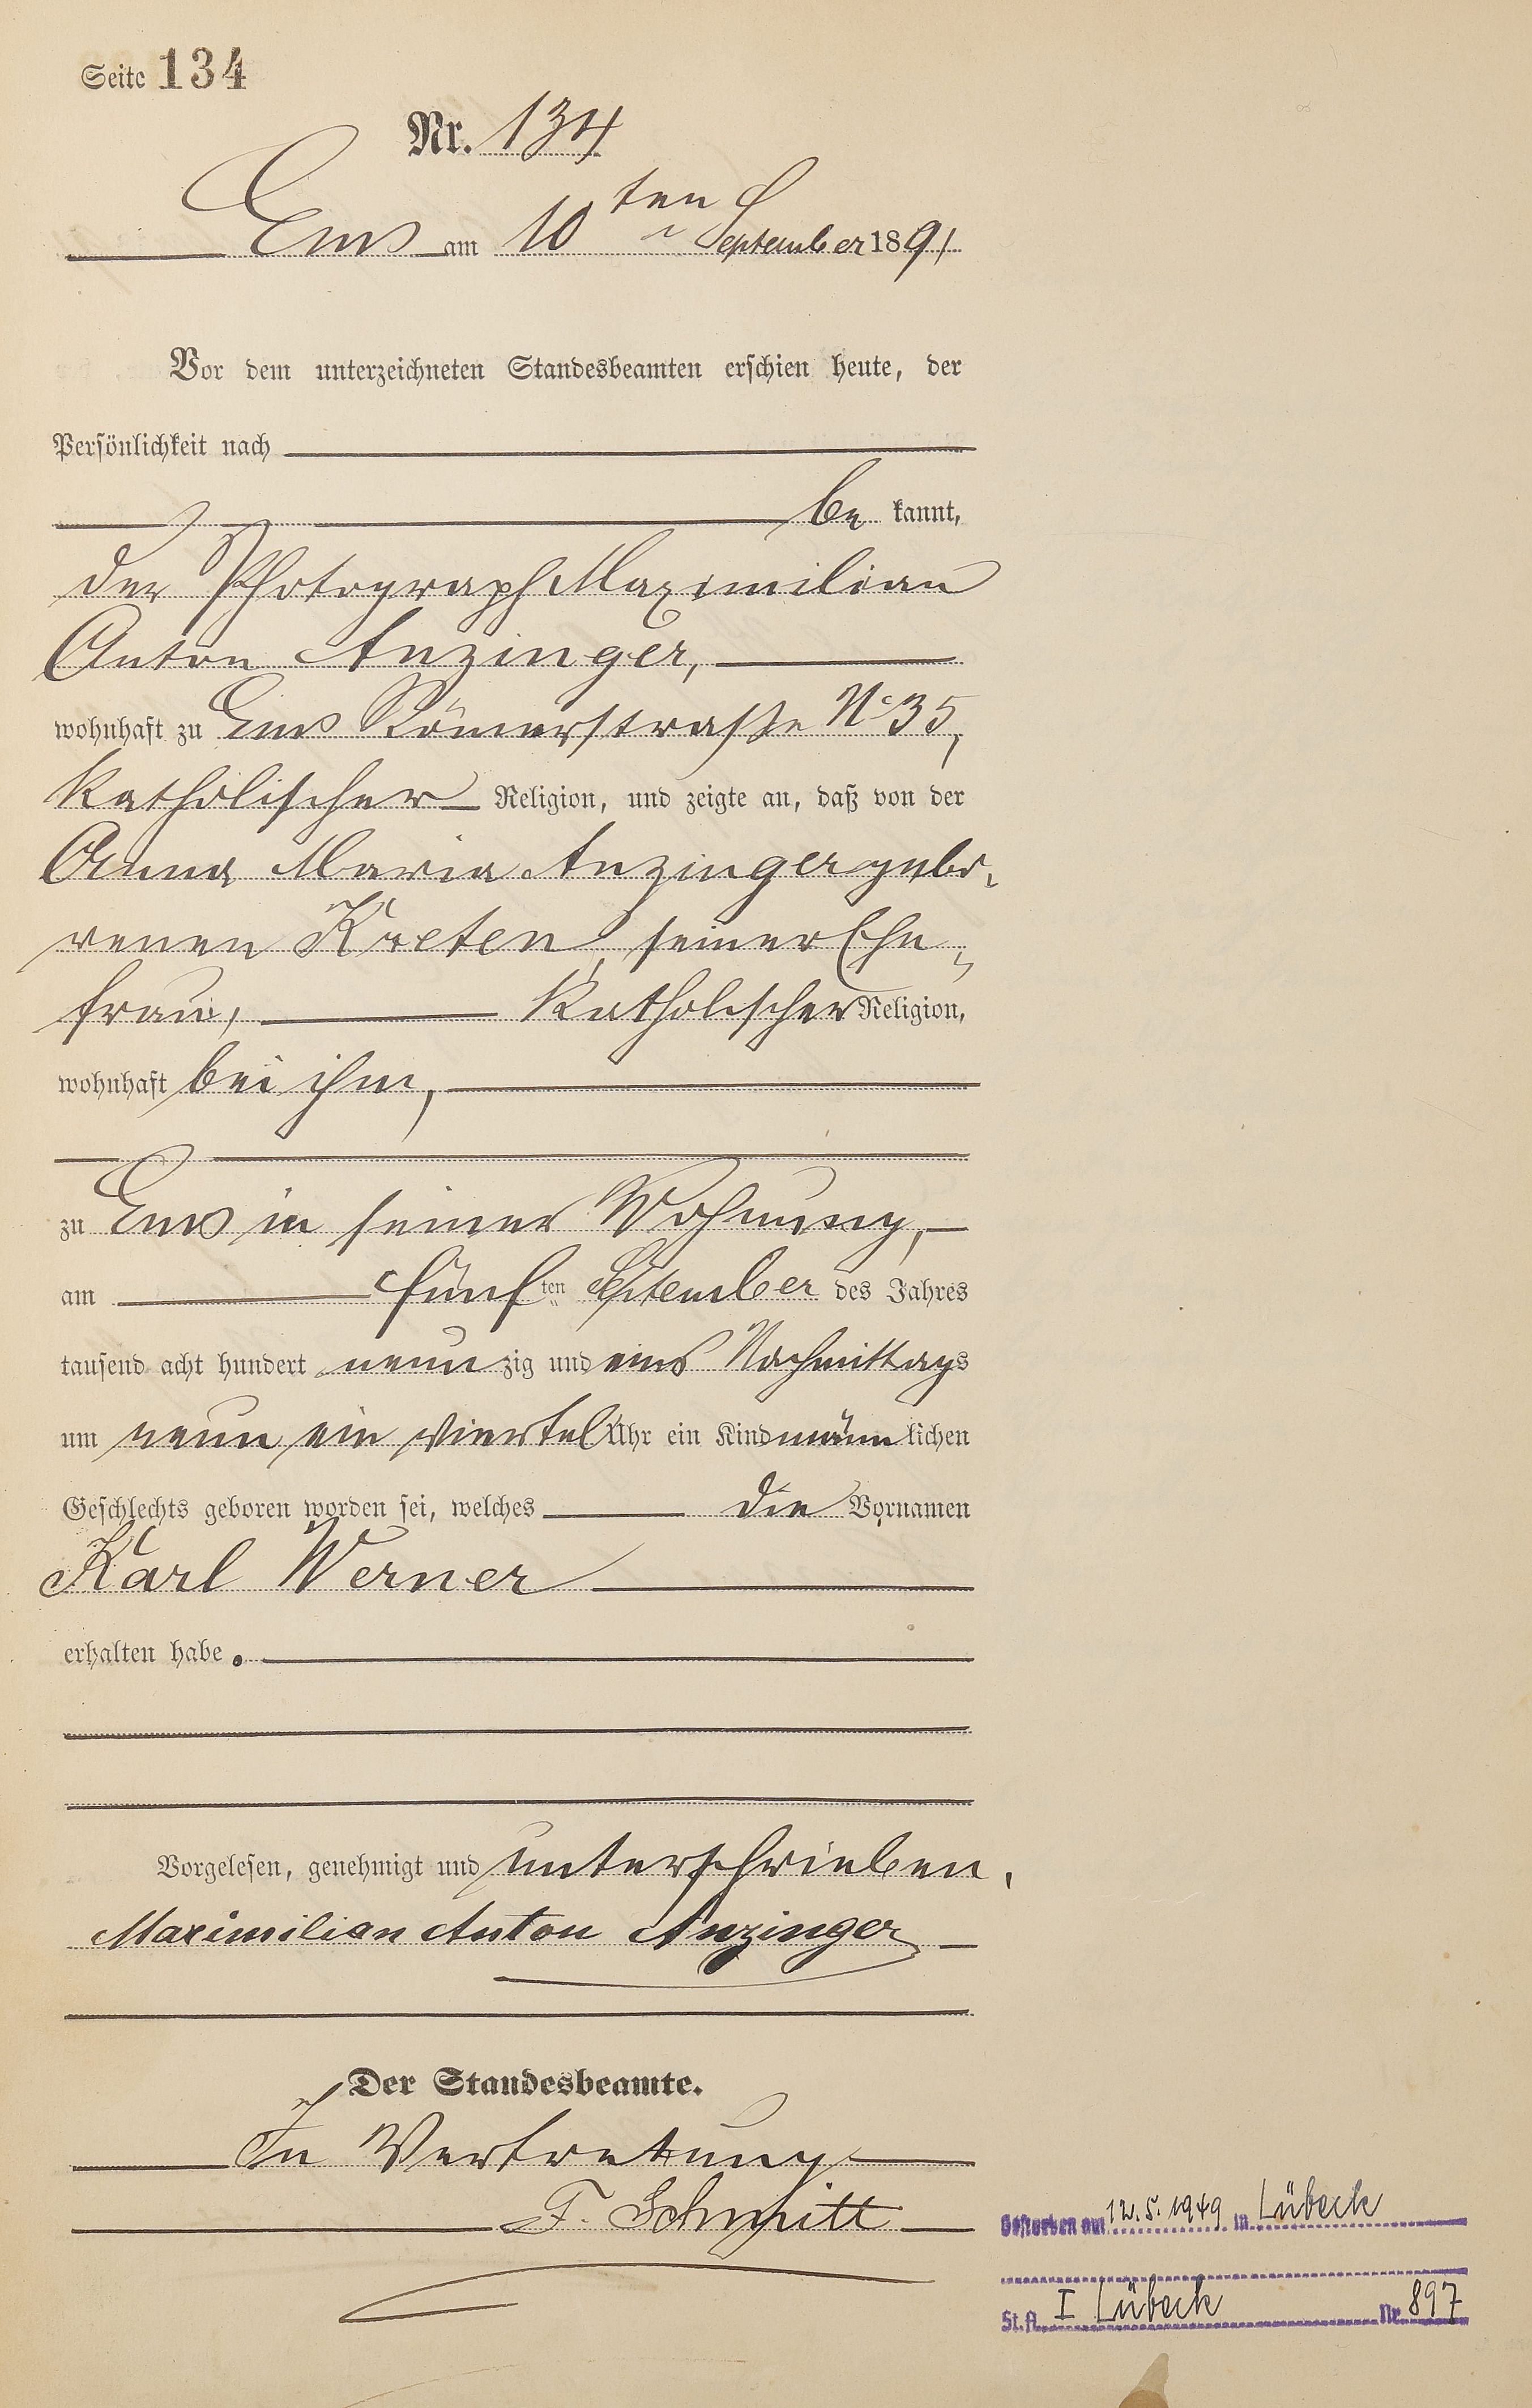 Seite 134
Nr. 134
Ems am 10ten September 1891
Vor dem unterzeichneten Standesbeamten erschien heute, der
Persönlichkeit nach
be kannt,
der Photograph Maximilian
Anton Anzinger,
wohnhaft zu Ems Römerstraße No 35,
katholischer Religion, und zeigte an, daß von der
Anna Maria Anzinger gebo-
renen Kreten, seiner Ehe-
frau, katholischer Religion,
wohnhaft bei ihm,
zu Ems in seiner Wohnung,
am fünften September des Jahres
tausend acht hundert neunzig und eins Nachmittags
um neun ein viertel Uhr ein Kind männlichen
Geschlechts geboren worden sei, welches die Vornamen
Karl Werner
erhalten habe.
Vorgelesen, genehmigt und unterschrieben.
Maximilian Anton Anzinger
Der Standesbeamte.
In Vertretung
F. Schmitt
Gestorben am 12.5.1949 in Lübeck
St.A. I Lübeck Nr. 897